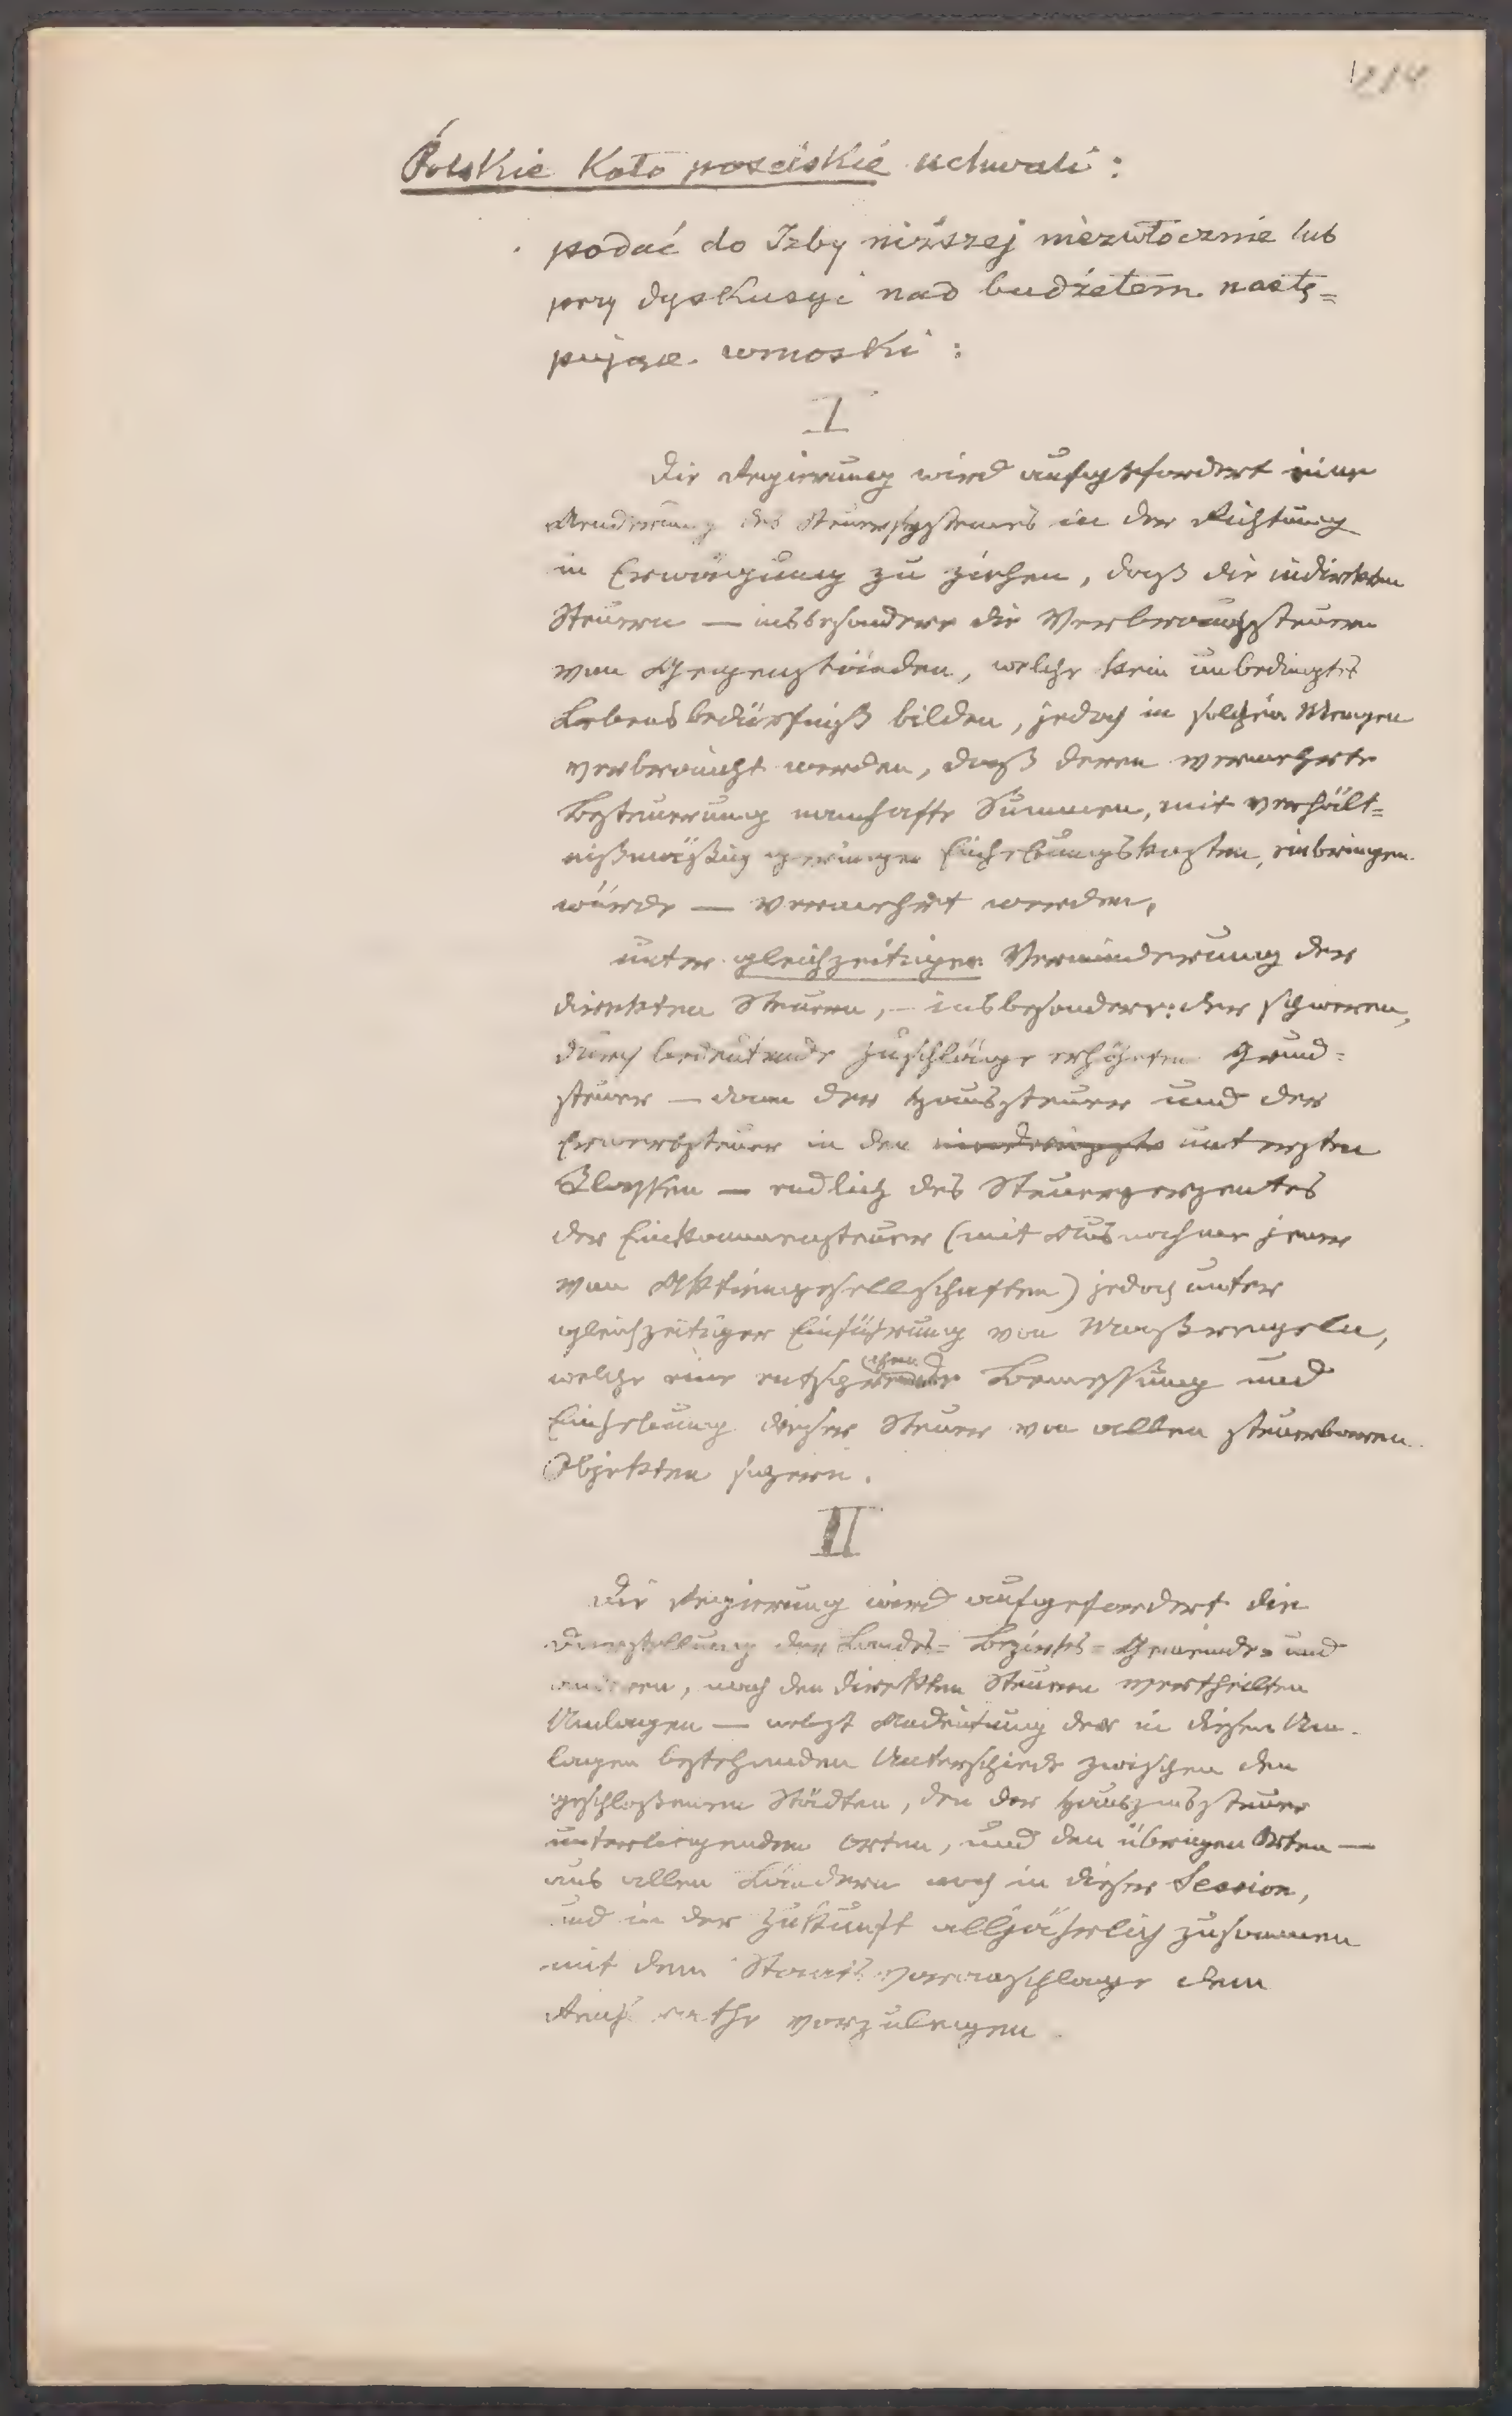 214
Polskie Koło poselskie uchwali:
podać do Izby niższej niezwłocznie lub
przy dyskusyi nad budżetem nastę=
pujące wnioski:
I
Die Regierung wird aufgefordert eine
Aenderung des Steuersystemes in der Richtung
in Erwägung zu ziehen, daß die indirekten
Steuern — insbesondere die Verbrauchssteuern
von Gegenständen, welche kein unbedingtes
Lebensbedürfniß bilden, jedoch in solchen Mengen
verbraucht werden, daß deren vermehrte
Besteuerung namhafte Summen, mit verhält=
nißmäßig geringen Einhebungskosten, einbringen
würde — vermehrt werden,
unter gleichzeitiger Verminderung der
direkten Steuern, – insbesondere: der schweren,
durch bedeutende Zuschläge erhöhten Grund=
steuer — dann der Haussteuer und der
Erwerbsteuer in den untersten
Klassen — endlich des Steuerperzentes
der Einkommensteuer (mit Ausnahme jener
von Aktiengesellschaften) jedoch unter
gleichzeitiger Einführung von Maßregeln,
welche eine Bemessung und
Einhebung dieser Steuer von allen steuerbaren
Objekten sichern.
II
Die Regierung wird aufgefordert die
Darstellung der Landes= Bezirks= Gemeinde= und
anderen, nach den direkten Steuern vertheilten
Umlagen — nebst Andeutung der in diesen Um=
lagen bestehenden Unterschiede zwischen den
geschloßenen Städten, den der Hauszinssteuer
unterliegenden Orten, und den übrigen Orten —
aus allen Ländern noch in dieser Session,
und in der Zukunft alljährlich zusammen
mit dem Staatsvoranschlage dem
Reichsrathe vorzulegen.